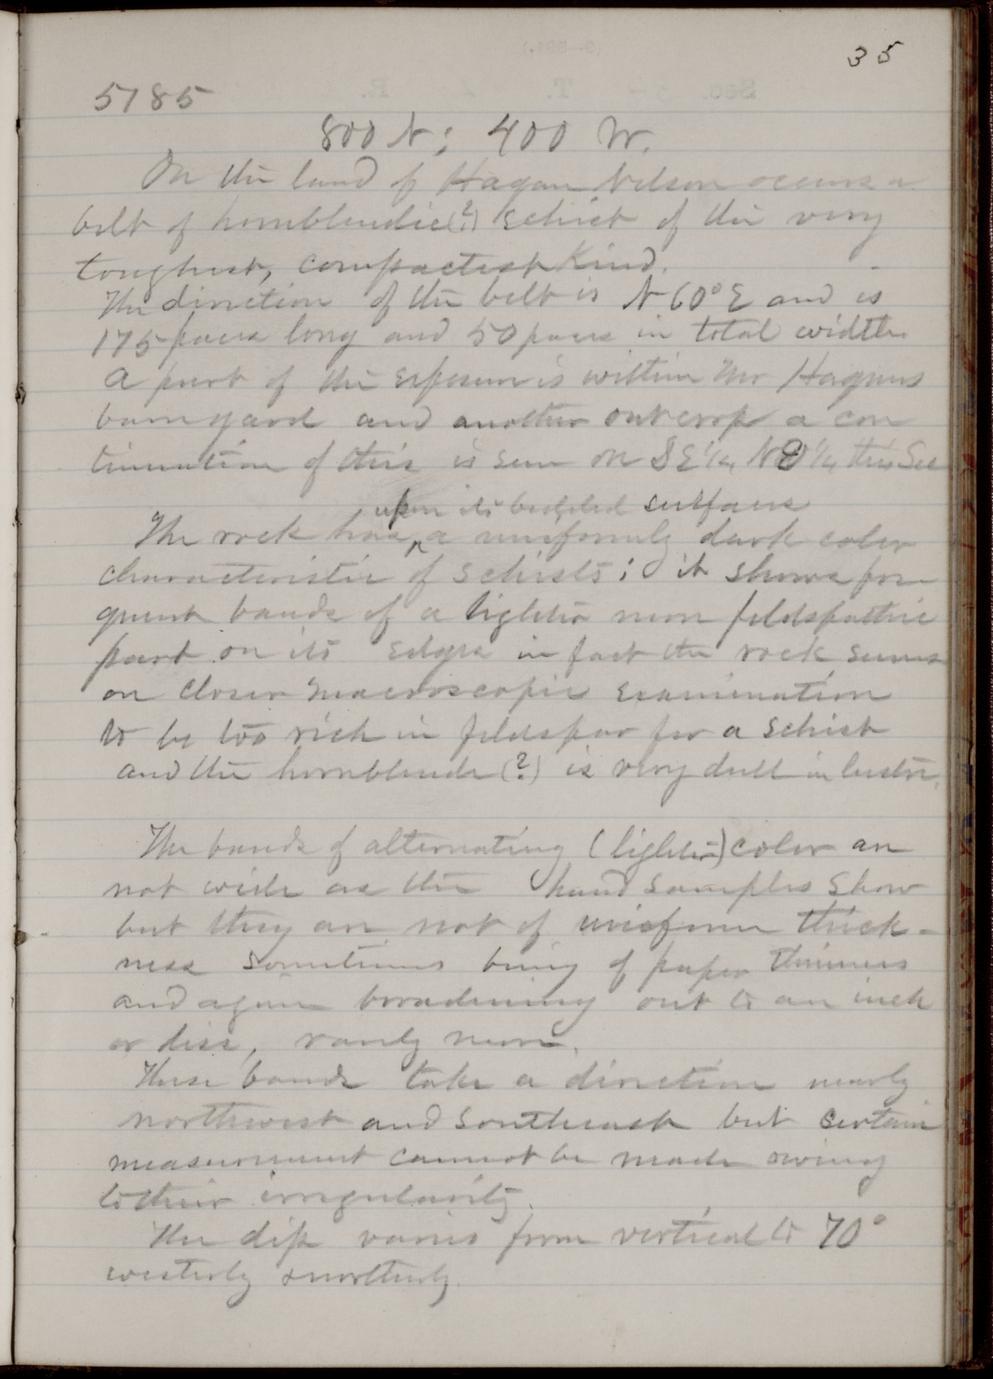 35
5185
800 N; 400 W.
On the land of Hagan Nelson occurs a
belt of hornblendic(?) schist of the very
toughest, compactest kind.
The direction of the belt is N 60° E and is
175 paces long and 50 paces in total width
A part of the exposure is within Mr Hagans
barnyard and another outcrop a con
tinuation of this is seen on SE 1/4, 1/4 this Sec
upon its surfaces
The rock has a uniformly dark color
characteristic of schists; it shows fre-
quent bands of a lighter more feldspathic
part on its edges in fact the rock seems
on closer macroscopic examination
to be too rich in feldspar for a schist
and the hornblende (?) is very dull in lustre.
The bands of alternating (lighter) color are
not wide as the hand samples show
but they are not of uniform thick-
ness sometimes being of paper thinness
and again broadening out to an inch
or less, rarely more.
These bands take a direction nearly
northwest and southeast but certain
measurement cannot be made owing
to their irregularity.
The dip varies from vertical to 70°
westerly northerly.